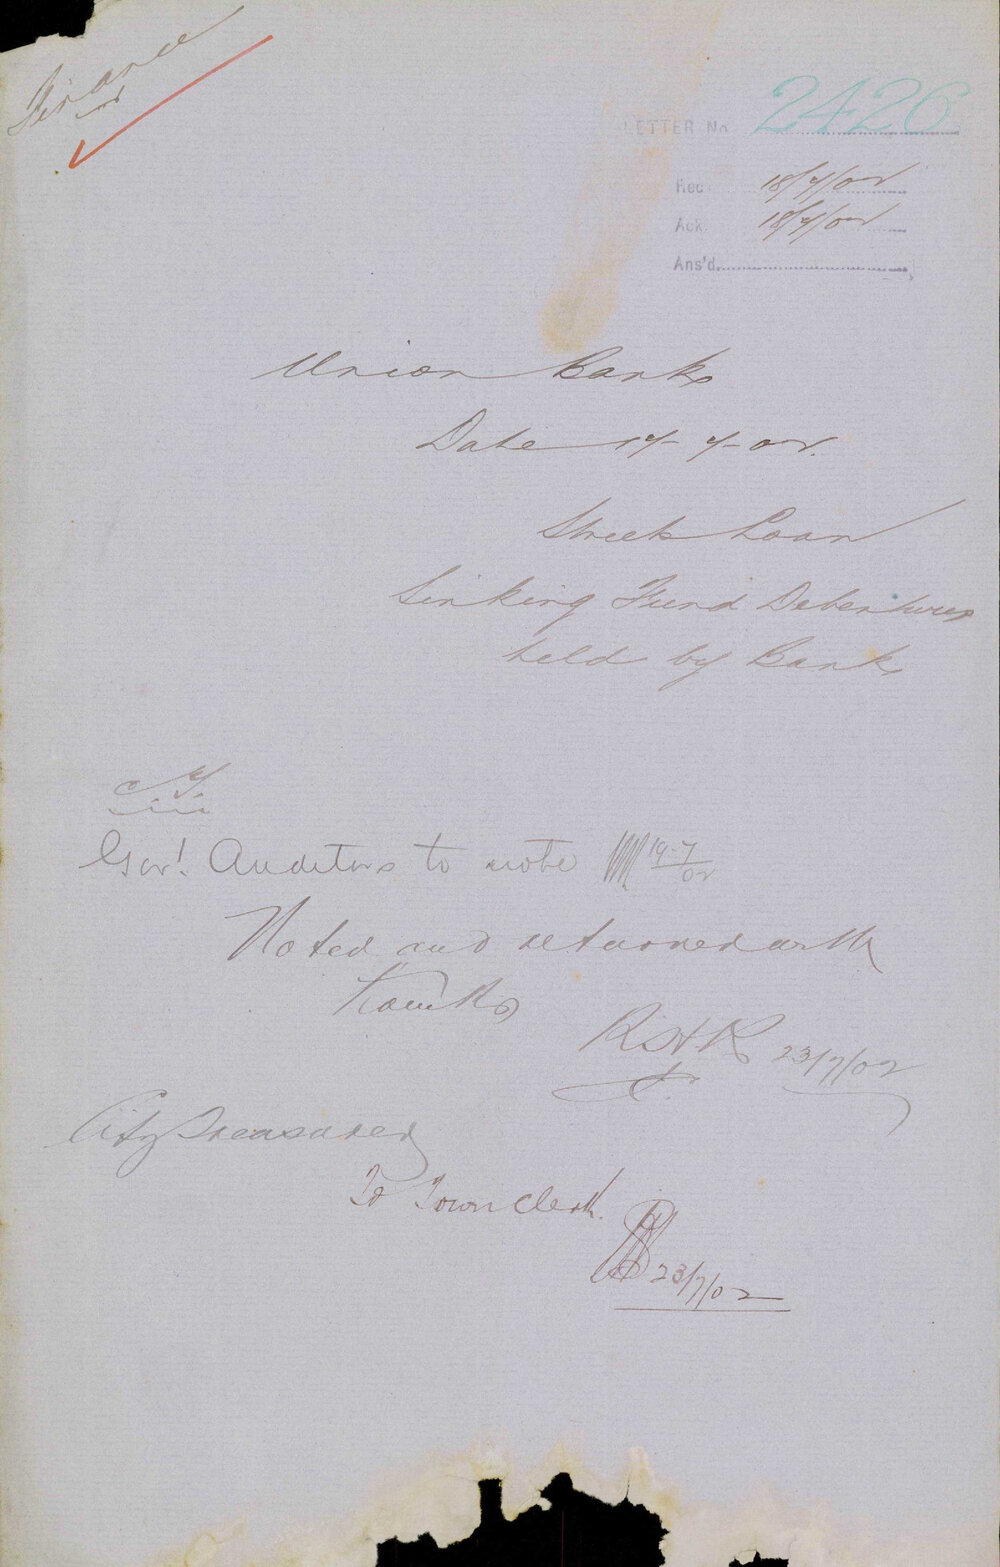 Finance
LETTER No 2426
Rec. 18/7/02
Ack. 18/7/02
Ans'd.
Union Bank
Date 17-7-02.
Streets Loan
Sinking Fund Debentures
held by Bank
Govt. Auditors to note 19-7/02
Noted and returned with
thanks
23/7/02
City Treasurer
To Town Clerk.
23/7/02